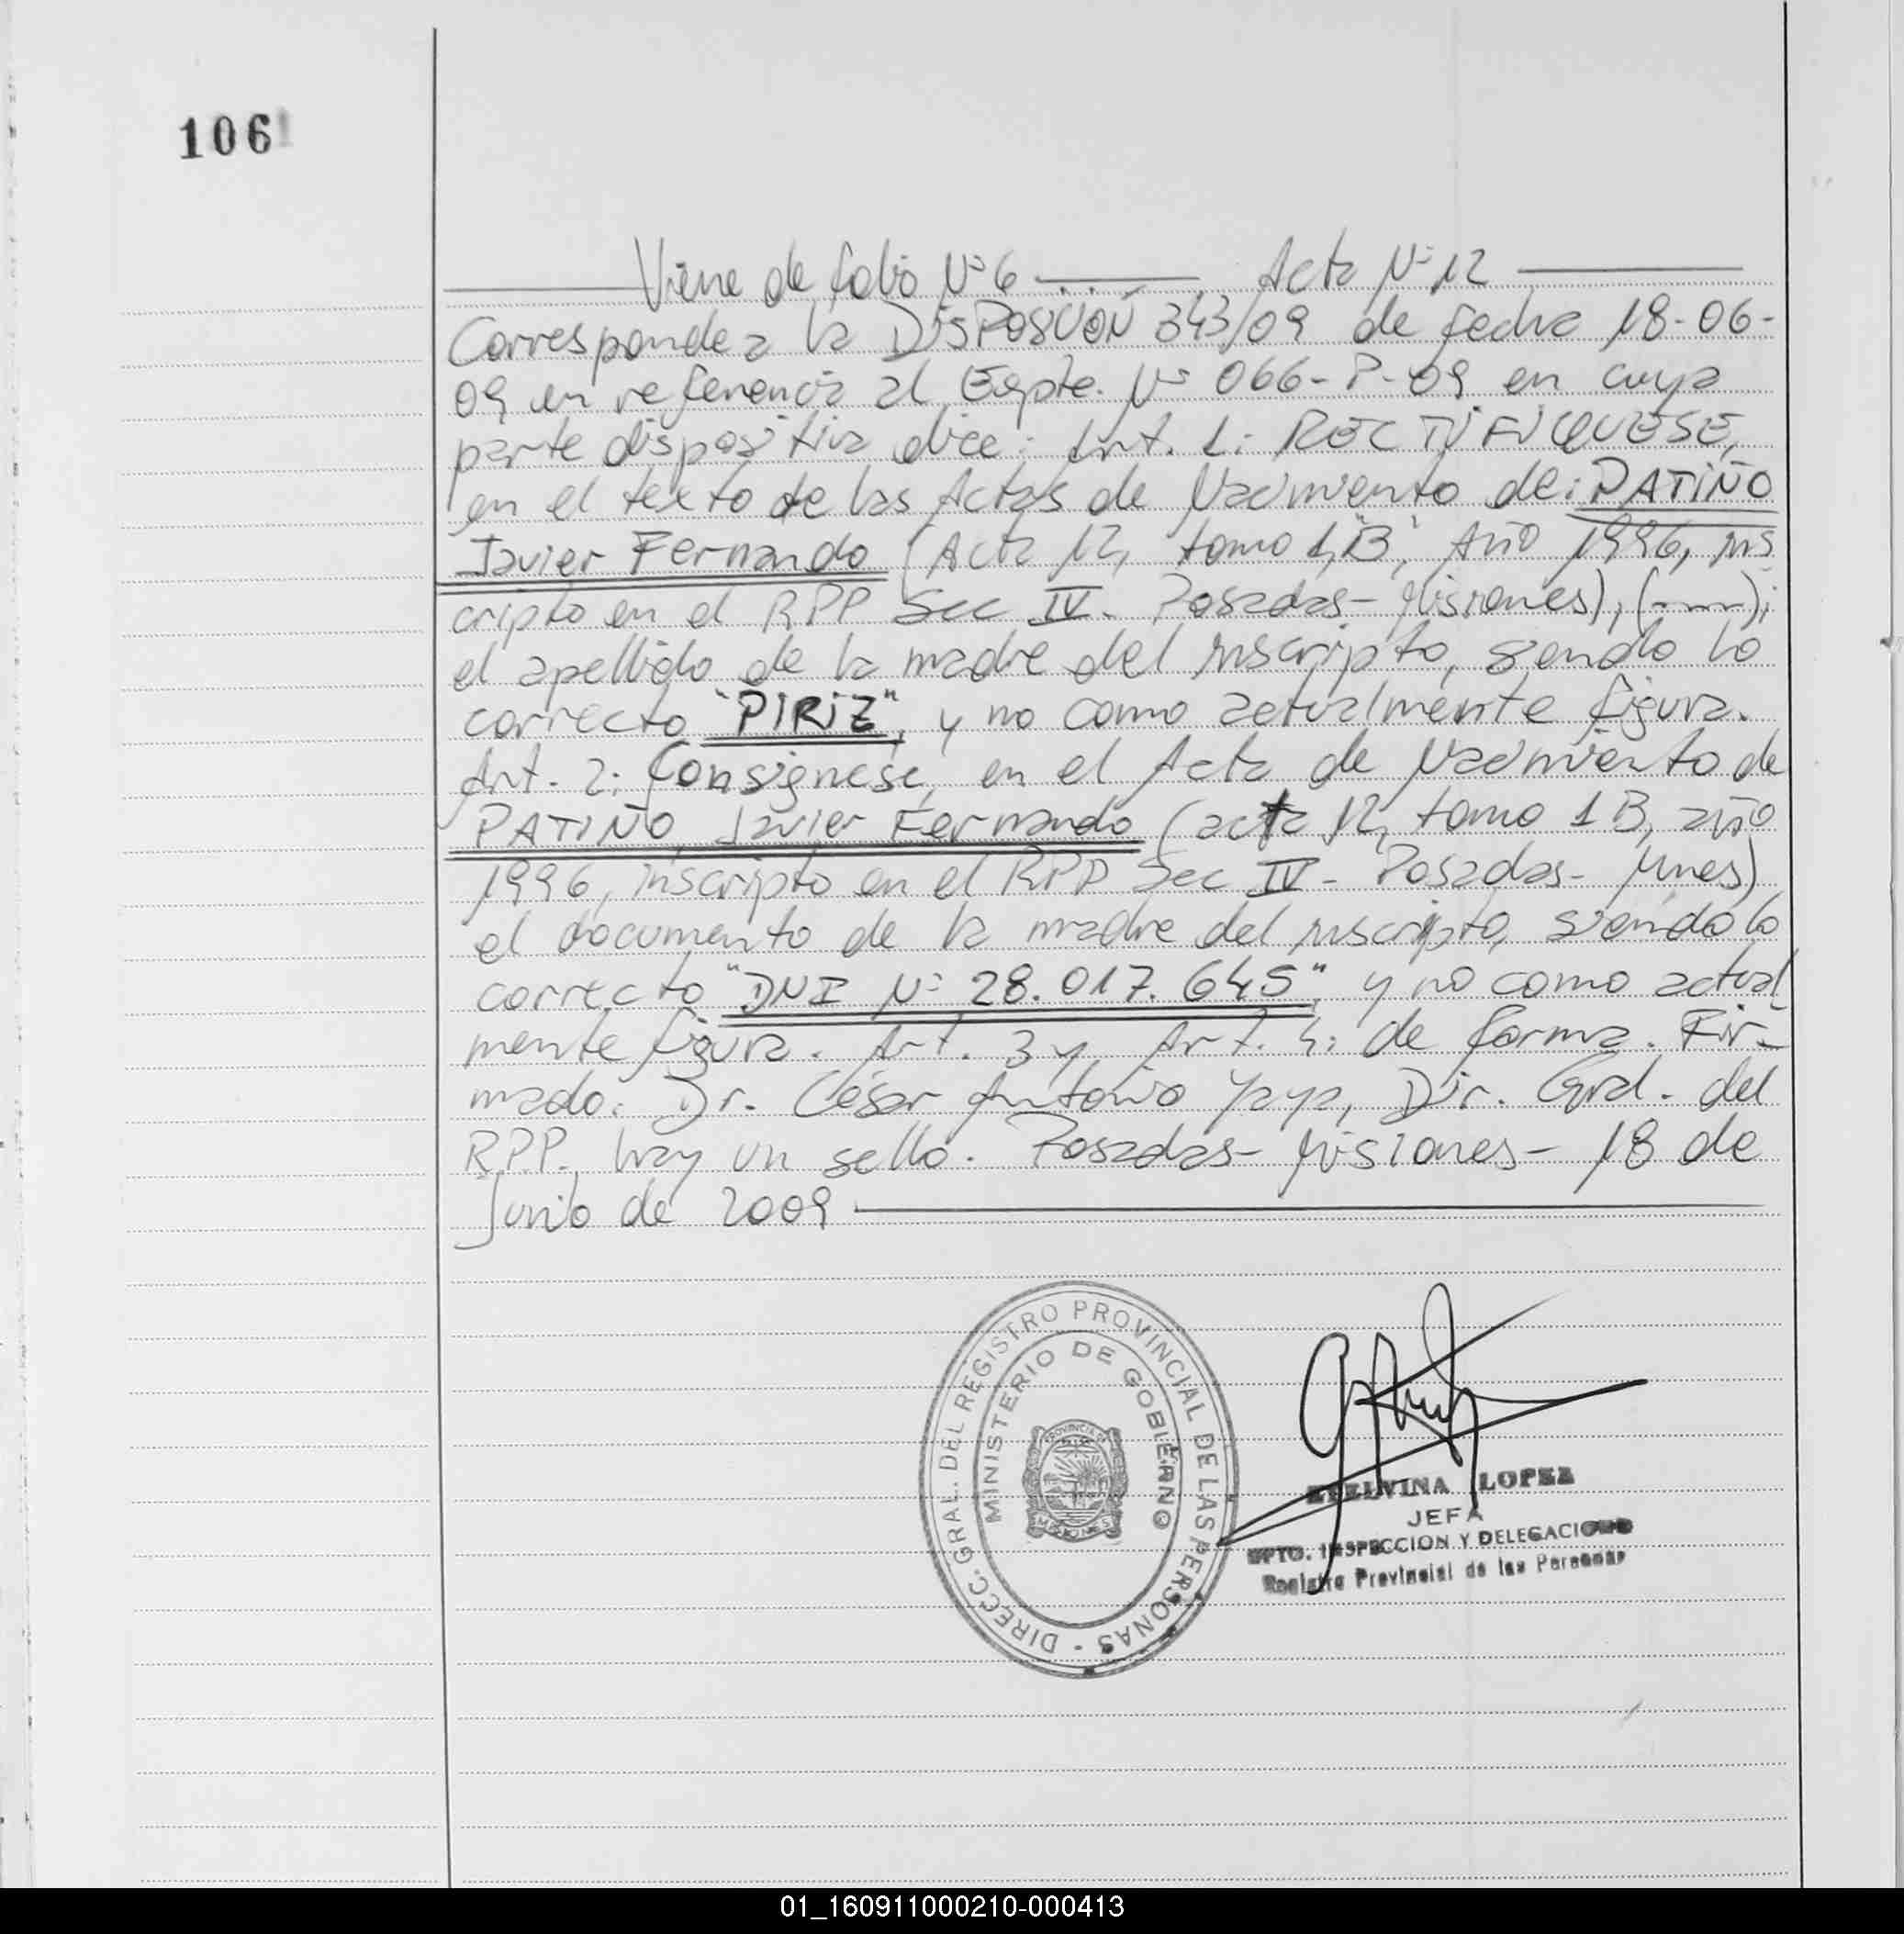 106
Viene de folio Nº 6 ——— Acta Nº 12 ———
Corresponde a la DISPOSICIÓN 343/09 de fecha 18-06-
09 en referencia al Expte. Nº 066-P-09 en cuya
parte dispositiva dice: Art. 1: RECTIFIQUESE,
en el texto de las Actas de Nacimiento de: PATIÑO
Javier Fernando (Acta 12, tomo 1 "B", Año 1996, ins
cripto en el RPP Sec IV - Posadas - Misiones), (-----);
el apellido de la madre del inscripto, siendo lo
correcto "PIRIZ", y no como actualmente figura.
Art. 2: Consignese, en el Acta de Nacimiento de
PATIÑO, Javier Fernando (acta 12, tomo 1 B, año
1996, inscripto en el RPP Sec IV - Posadas - Mnes)
el documento de la madre del inscripto, siendo lo
correcto "DNI Nº 28.017.645", y no como actual
mente figura. Art. 3 y Art. 4: de forma. Fir-
mado: Dr. César Antonio Yaya, Dir. Gral. del
R.P.P., hay un sello. Posadas - Misiones - 18 de
Junio de 2009 ———
DIRECC. GRAL. DEL REGISTRO PROVINCIAL DE LAS PERSONAS -
MINISTERIO DE GOBIERNO
PROVINCIA DE
MISIONES
LOPEZ
JEFA
DPTO. INSPECCION Y DELEGACIONES
Registro Provincial de las Personas
01_160911000210-000413